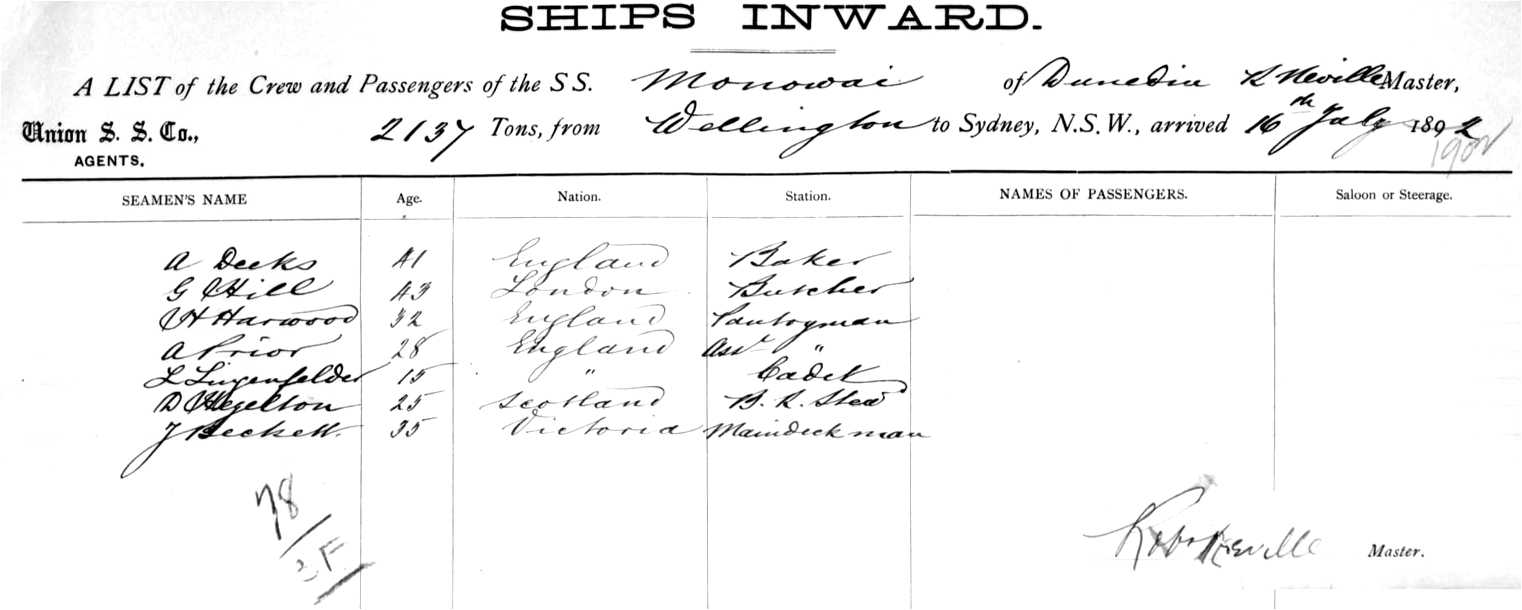 SHIPS INWARD.
A LIST of the Crew and Passengers of the S S. Monowai of Dunedin R Neville Master,
Union S. S. Co., 2137 Tons, from Wellington to Sydney, N.S.W., arrived 16th July 1892
AGENTS. 1902
SEAMEN'S NAME Age. Nation. Station. NAMES OF PASSENGERS. Saloon or Steerage.
A Deeks 41 England Baker
G Hill 43 London Butcher
W Harwood 32 England Pantryman
A Prior 28 England Asst "
L Lingenfelder 15 " Cadet
D Hezelton 25 Scotland B. R. Stew
J Beckett. 35 Victoria Maindeckman
78
F
Neville Master.